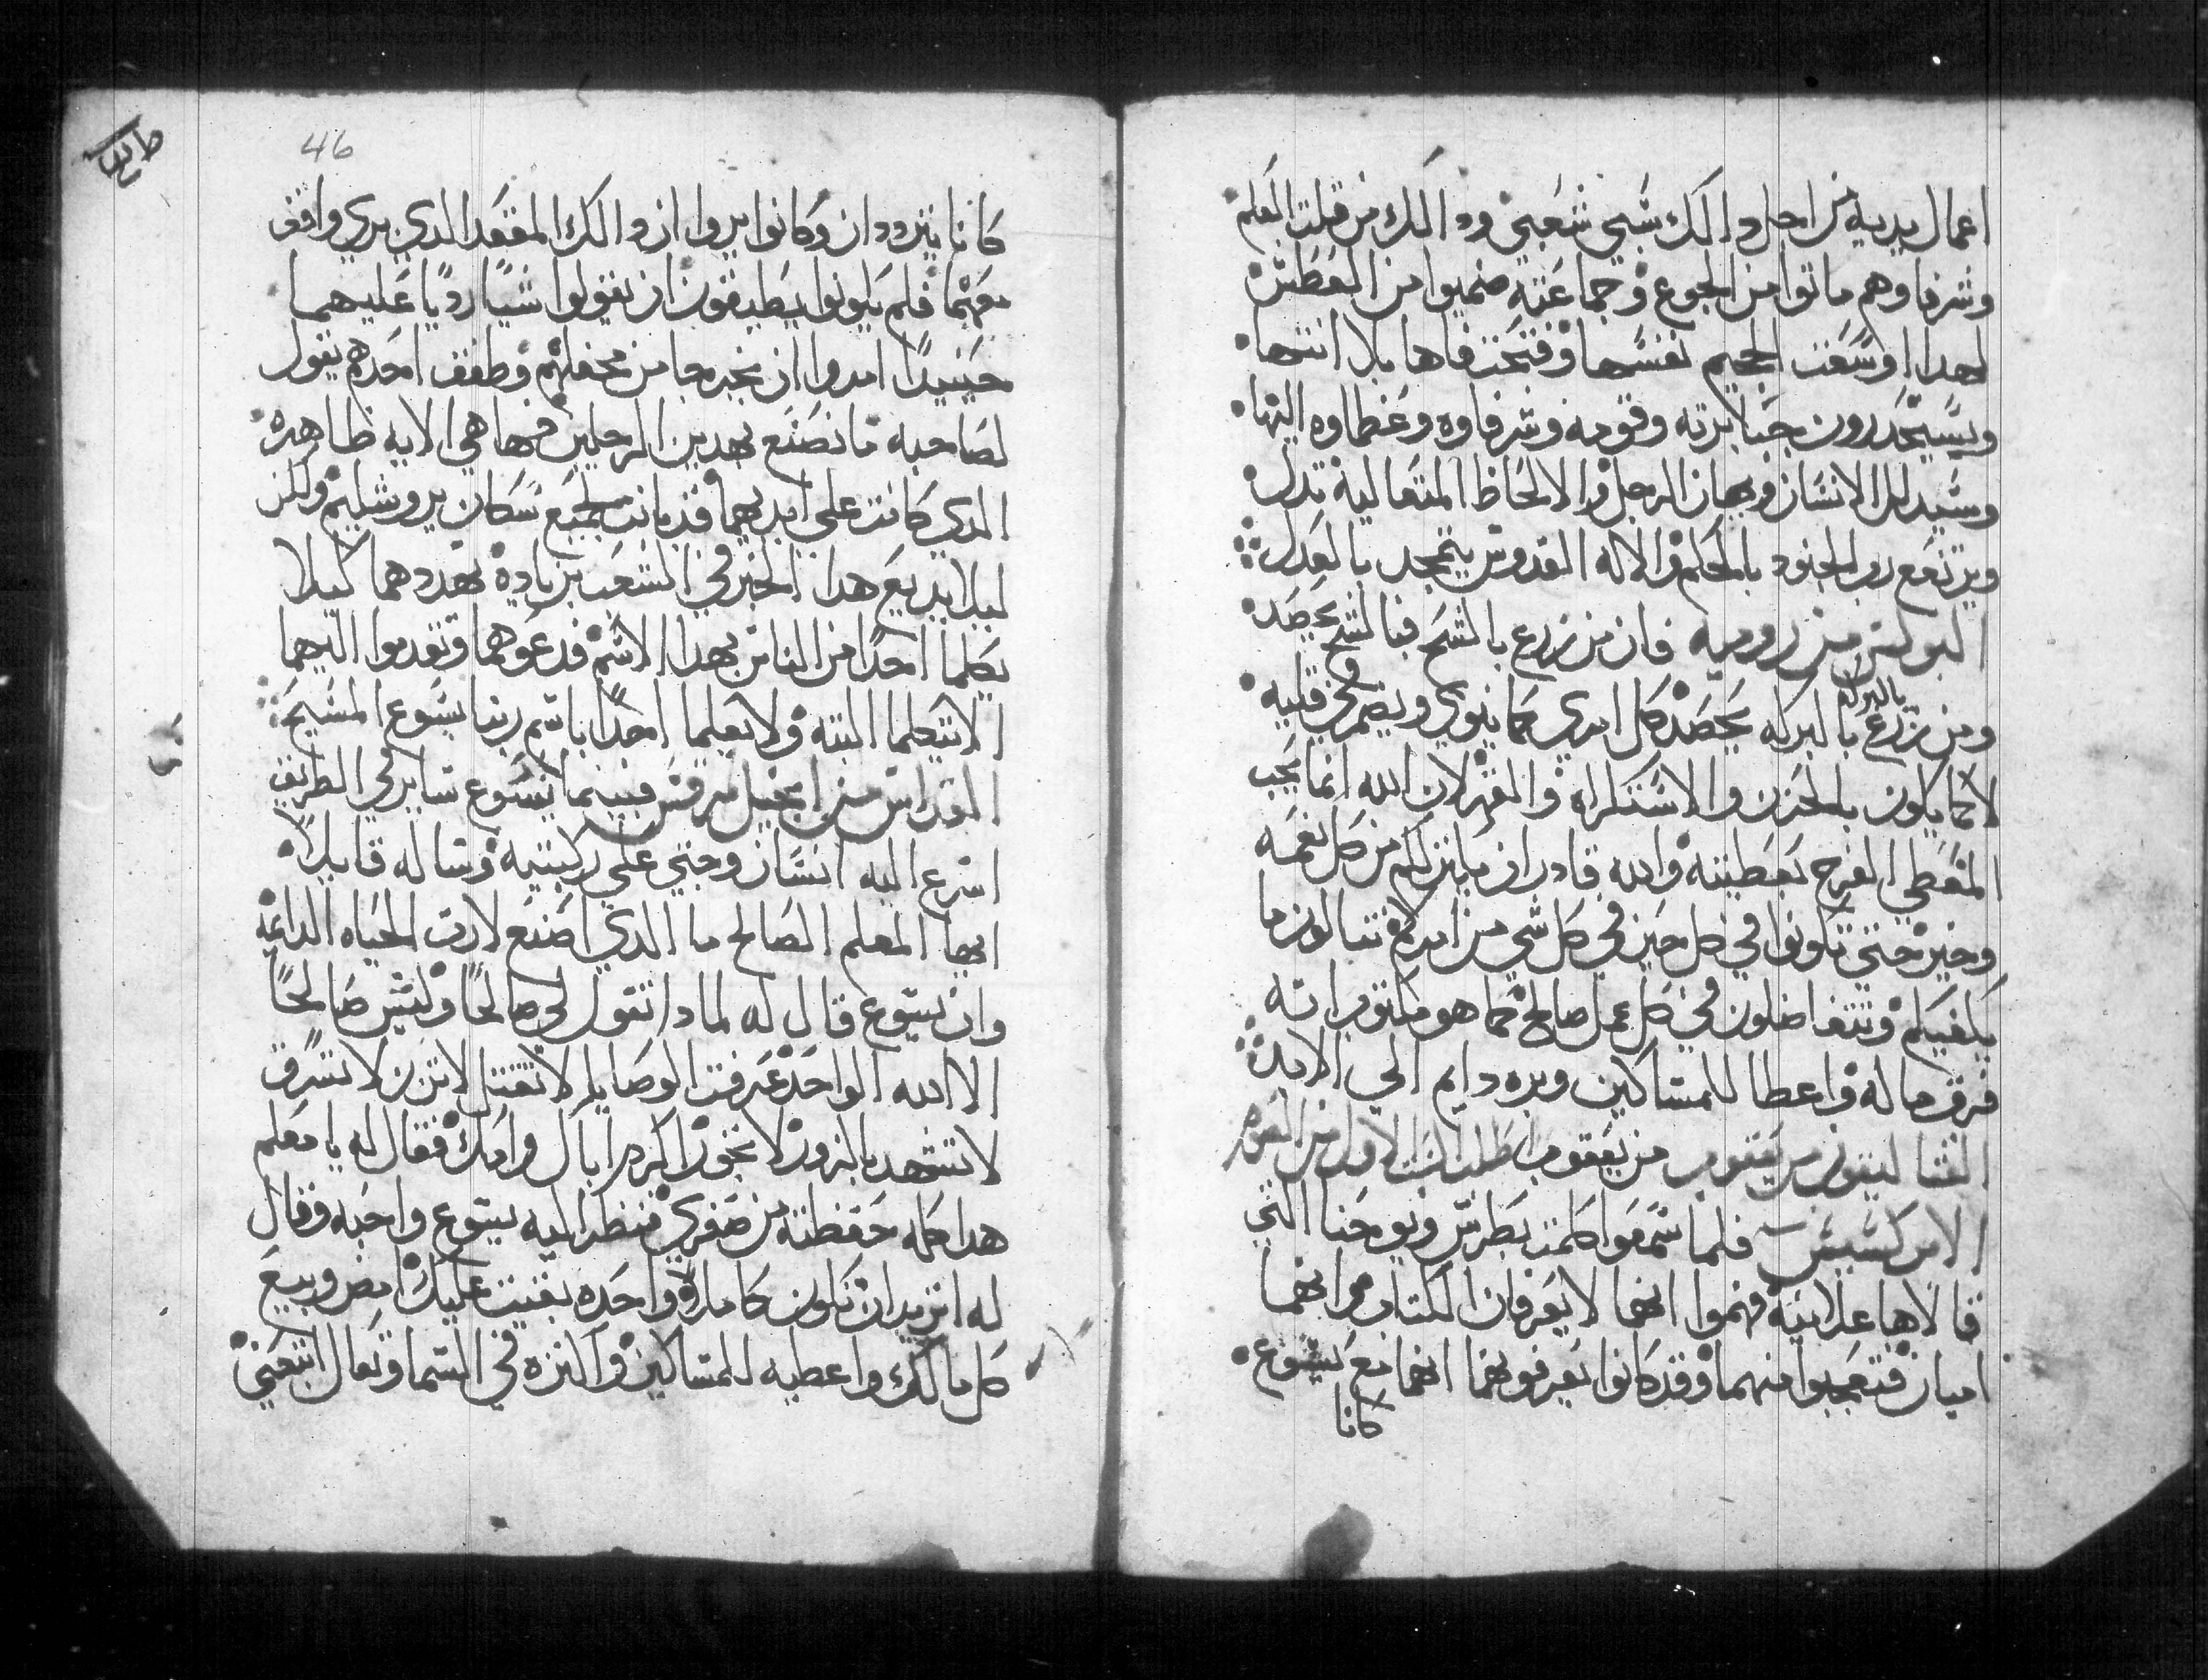 اعمال يديه من اجل دالك شبي شعبي ودالك من قلت العلم
وشرفاوهم ماتوا من الجوع وجماعته ضميوا من العطش
لهدا اوسعت الجحيم نفسها وفتحت فاها بلا انتها
ويسيحدرون جبابرته وقومه وشرفاوه وعظماوه اليها
وسيدلل الانسان ويهان الرجل والالحاظ المتعالية تدل
ويرتفع رب الجنود بالحكم والاله القدوس يتمجد بالعدل
البولس من روميه فان من زرع بالشح فبالشح يحصد
بالبركه
ومن زرع بالبركه يحصد كل امري كما ينوي ويضمر في قلبه
لا كما يكون بالحزن والاستكراه والقهر لان الله انما يحب
المعطي الفرح بعطيته والله قادر ان يانزلكم من كل نعمه
وخير حتي تكونوا في كل حين في كل شي من امركم تنالون ما
يكفيكم وتتفاضلون في كل عمل صالح كما هو مكتوب انه
فرق ماله واعطا للمساكين وبره دايم الي الابد
القتاليقون من يعقوب من يعقوب اطلب الاول من
الابركسيس فلما سمعوا كلمت بطرس ويوحنا التي
قالاها علانية فهموا انهما لا يعرفان الكتاب وانهما
اميان فتعجبوا منهما وقد كانوا يعرفونهما انهما مع يسوع
كانا
46
كانا يترددان وكانوا يروا ان دالك المقعد الدي بري واقف
معهما فلم يكونوا يطيقون ان يقولوا شيًا رديًا عليهما
حينيدًا امروا ان يخرجا من محفلهم وطفق احدهم يقول
لصاحبه ما نصنع بهدين الرجلين فها هي الايه ظاهره
الدي كانت علي ايديهما قد بانت لجميع سكان يروشليم ولكن
ليلا يديع هدا الخبر في الشعب بزيادة نهددهما كيلا
يكلما احدًا من الناس بهدا الاسم فدعوهما وتقدموا اليهما
الا يتكلما البته ولا يعلما احدًا باسم ربنا يسوع المسيح
القداس من انجيل مرقس فبينما يسوع ساير في الطريق
اسرع اليه انسان وجتي علي ركبتيه وساله قايلا
ايها المعلم الصالح ما الدي اصنع لارت الحياه الدايمه
وان يسوع قال له لمادا تقول لي صالحًا وليس صالحًا
الا الله الواحد عرفت الوصايا لا تقتل لا تزن لا تسرق
لا تشهد بالزور لا تخون اكرم اباك وامك فقال له يا معلم
هدا كله حفظته من صغري فنظر اليه يسوع واحبه وقال
له اتريد ان تكون كاملا واحده بقيت عليك امض وبيع
كل مالك واعطيه للمساكين واكنزه في السما وتعال اتبعني